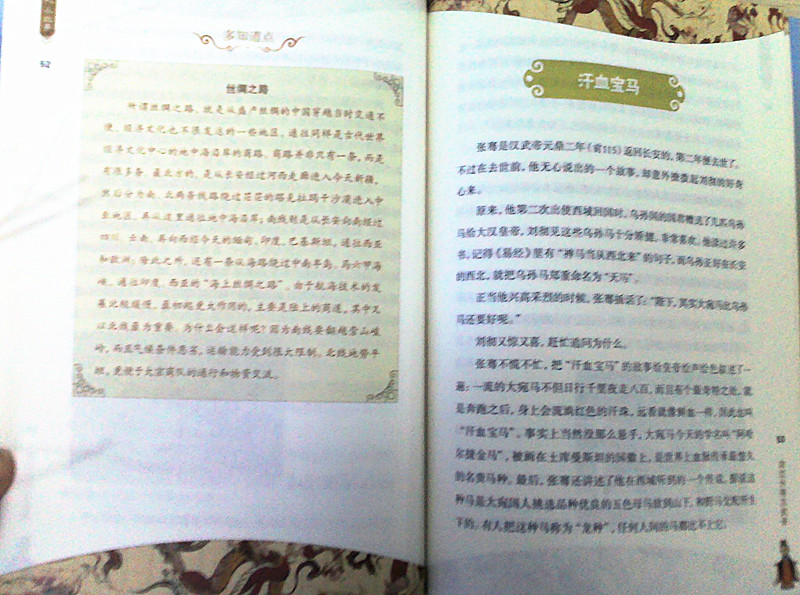 52
多知道点
丝绸之路
所谓丝绸之路，就是从盛产丝绸的中国穿越当时交通不
便、经济文化也不很发达的一些地区，通往同样是古代世界
经济文化中心的地中海沿岸的商路。商路并非只有一条，而是
有很多条。最北方的，是从长安经过河西走廊进入今天新疆，
然后分为南、北两条线路绕过茫茫的塔克拉玛干沙漠进入中
亚地区，再从这里通往地中海沿岸；南线则是从长安向南经过
四川、云南，再向西经今天的缅甸、印度、巴基斯坦，通往西亚
和欧洲；除此之外，还有一条从海路绕过中南半岛、马六甲海
峡，通往印度、西亚的“海上丝绸之路”。由于航海技术的发
展比较缓慢，最初起更大作用的，主要是陆上的商道，其中又
以北线最为重要。为什么会这样呢？因为南线要翻越雪山峻
岭，而且气候条件恶劣，运输能力受到很大限制。北线地势平
坦，更便于大宗商队的通行和物资交流。
汗血宝马
张骞是汉武帝元鼎二年（前115）返回长安的，第二年便去世了。
不过在去世前，他无心说出的一个故事，却意外撩拨起刘彻的好奇
心来。
原来，他第二次出使西域回国时，乌孙国的国君赠送了几匹乌孙
马给大汉皇帝，刘彻见这些乌孙马十分矫健，非常喜欢。他读过许多
书，记得《易经》里有“神马当从西北来”的句子，而乌孙正好在长安
的西北，就把乌孙马郑重命名为“天马”。
正当他兴高采烈的时候，张骞插话了：“陛下，其实大宛马比乌孙
马还要好呢。”
刘彻又惊又喜，赶忙追问为什么。
张骞不慌不忙，把“汗血宝马”的故事给皇帝绘声绘色叙述了一
遍：一流的大宛马不但日行千里夜走八百，而且有个最奇特之处，就
是奔跑之后，身上会流淌红色的汗珠，远看就像鲜血一样，因此也叫
“汗血宝马”。事实上当然没那么悬乎，大宛马今天的学名叫“阿哈
尔捷金马”，被画在土库曼斯坦的国徽上，是世界上血脉传承最悠久
的名贵马种。最后，张骞还讲述了他在西域听到的一个传说，据说这
种马是大宛国人挑选品种优良的五色母马放到山下，和野马交配所生
下的。有人把这种马称为“龙种”，任何人间的马都比不上它。
53